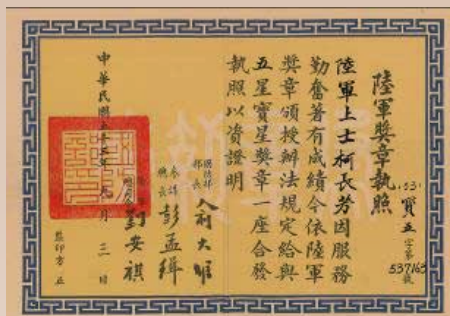 陸軍獎章執照
(53)寶五字第537163號
陸軍上士柯長芳因服務
勤奮著有成績今依陸軍
獎章頒授辦法規定給與
五星寶星獎章一座合發
執照以資證明
國防部
部長 俞大維
參謀
總長 彭孟緝
劉安祺
中華民國五十三年 月 三 日
監印方正